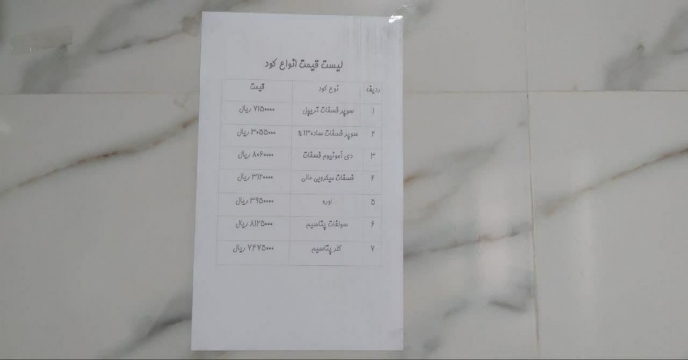 لیست قیمت انواع کود
ردیف نوع کود قیمت
۱ سوپر فسفات تریپل ۷۱۵۰۰۰۰ ریال
۲ سوپر فسفات ساده ۳۰۵۵۰۰۰ ریال
۳ دی آمونیوم فسفات ۸۰۶۰۰۰۰ ریال
۴ فسفات میکروبی مالی ۳۱۲۰۰۰۰ ریال
۵ اوره ۳۹۵۰۰۰۰ ریال
۶ سولفات پتاسیم ۸۱۲۵۰۰۰ ریال
۷ کلر پتاسیم ۷۴۷۵۰۰۰ ریال